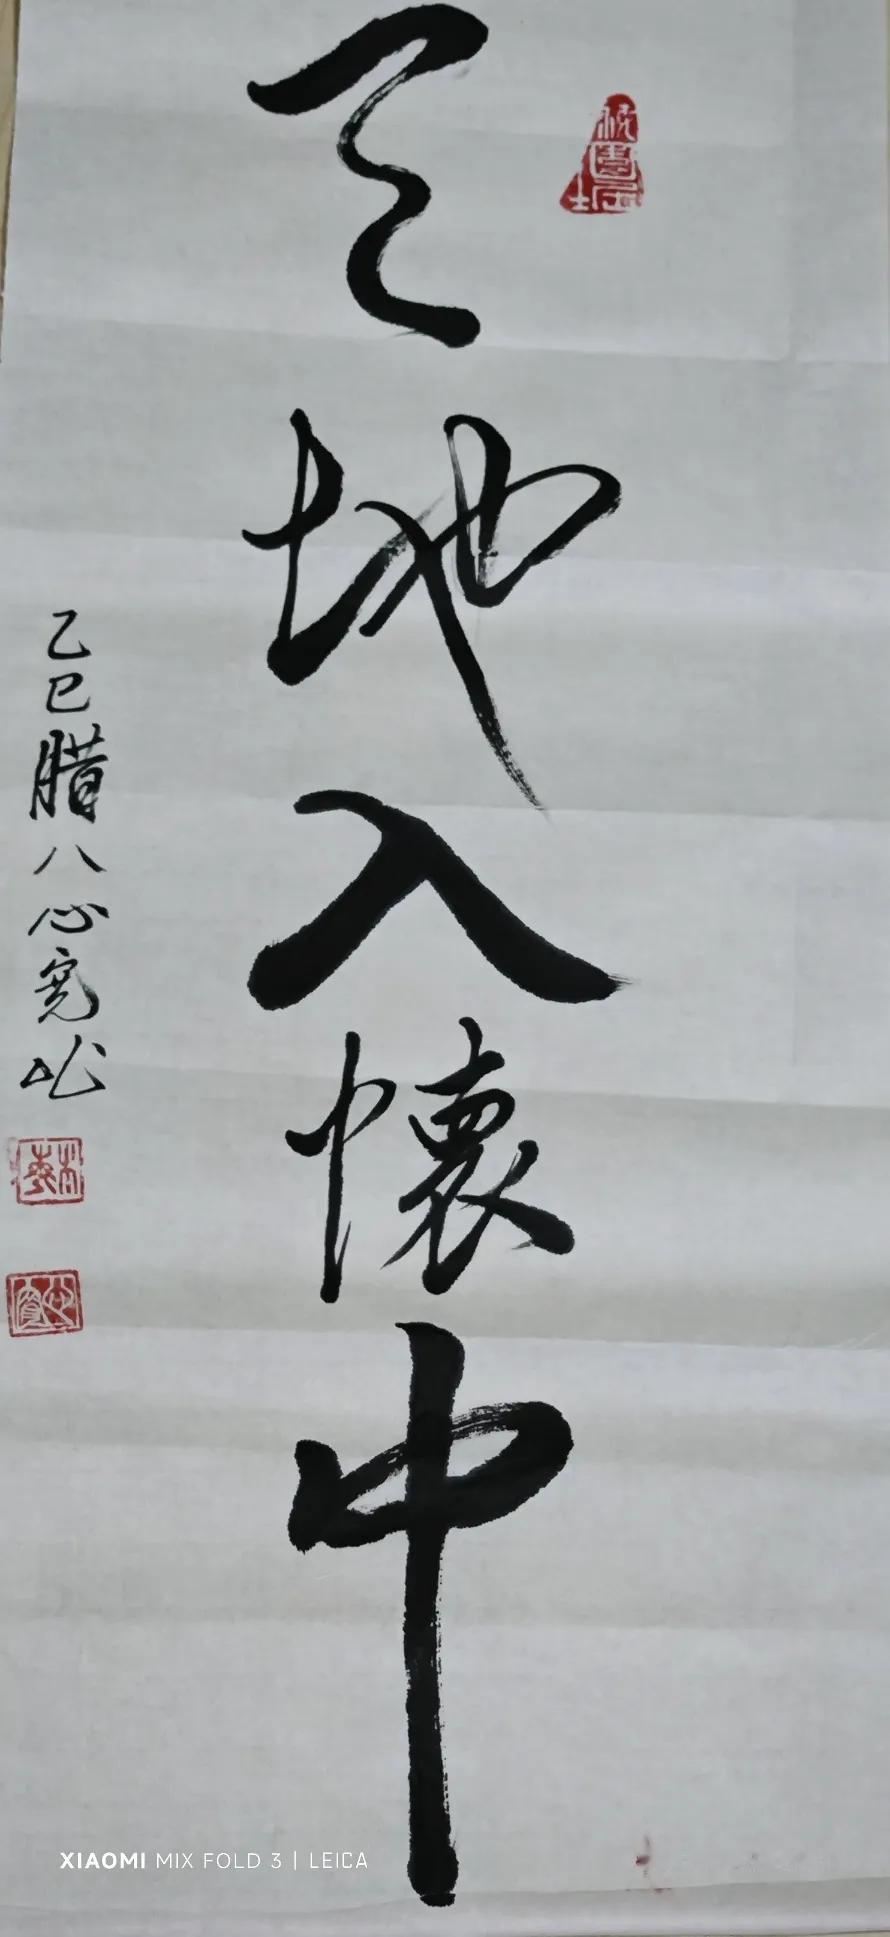 天地入懷中
乙巳腊八心寬书
XIAOMI MIX FOLD 3 | LEICA